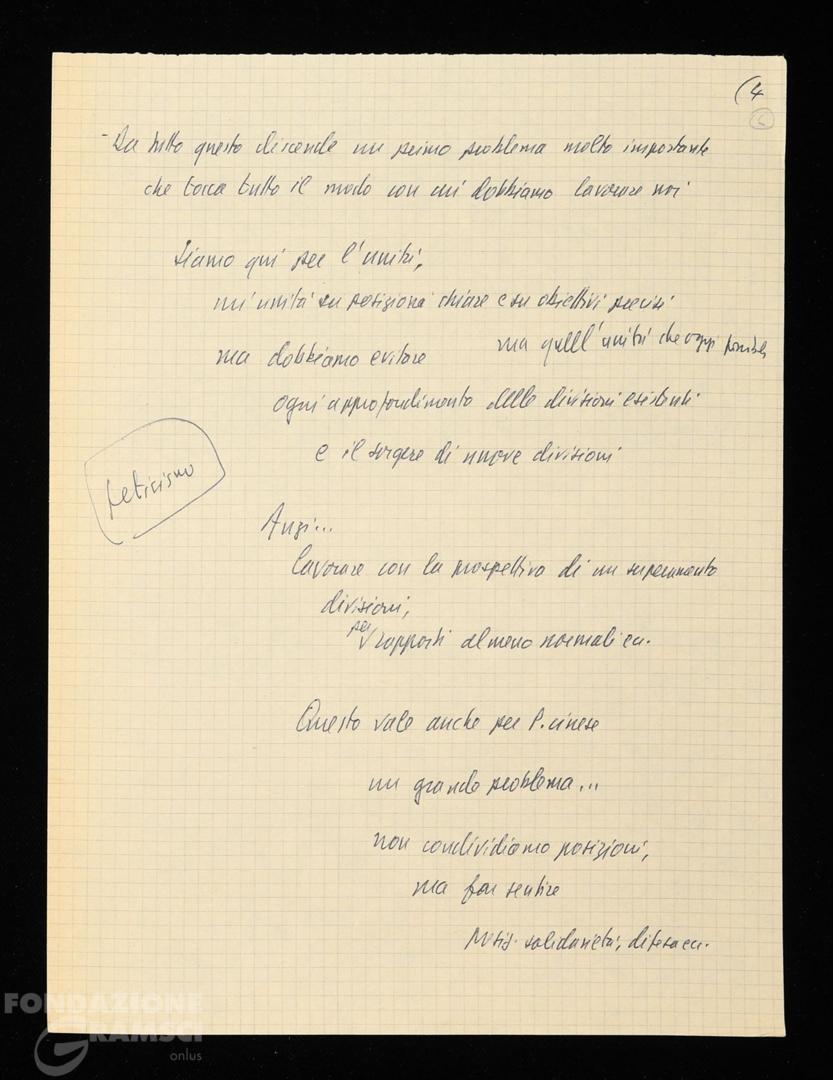 (4
- Da tutto questo discende un primo problema molto importante
che tocca tutto il modo con cui dobbiamo lavorare noi
Siamo qui per l'unità,
un'unità su posizioni chiare e su obiettivi precisi
ma quell'unità che oggi possibile
ma dobbiamo evitare
ogni approfondimento delle divisioni esistenti
e il sorgere di nuove divisioni
Anzi...
lavorare con la prospettiva di un superamento
divisioni,
per rapporti almeno normali ecc.
Questo vale anche per P. cinese
un grande problema...
non condividiamo posizioni,
ma far sentire
solidarietà, difesa ecc.
FONDAZIONE
GRAMSCI
onlus